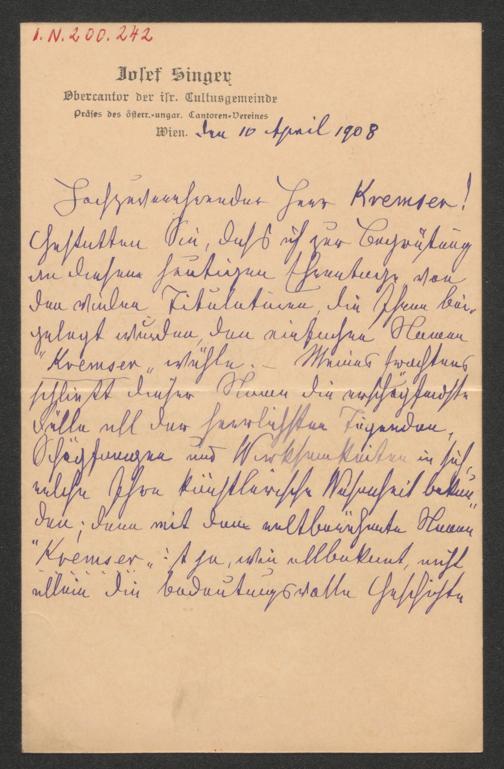 I.N.200.242
Josef Singer
Obercantor der isr. Cultusgemeinde
Präses des österr.-ungar. Cantoren-Vereines
Wien. den 10 April 1908
Hochzuverehrender Herr Kremser!
Gestatten Sie, daß ich zur Begrüßung
an diesem heutigen Ehrentage, von
den vielen Titulaturen, die Ihnen bei-
gelegt wurden, den einfachen Namen
"Kremser" wähle. – Meines Erachtens
schließt dieser Name die erschöpfendste
Fülle all der herrlichsten Tugenden,
Schöpfungen und Wirksamkeiten in sich,
welche Ihre künstlerische Wesenheit bekun-
den; denn mit dem weltberühmten Namen
"Kremser" ist ja, wie allbekannt, nicht
allein die bedeutungsvolle Geschichte